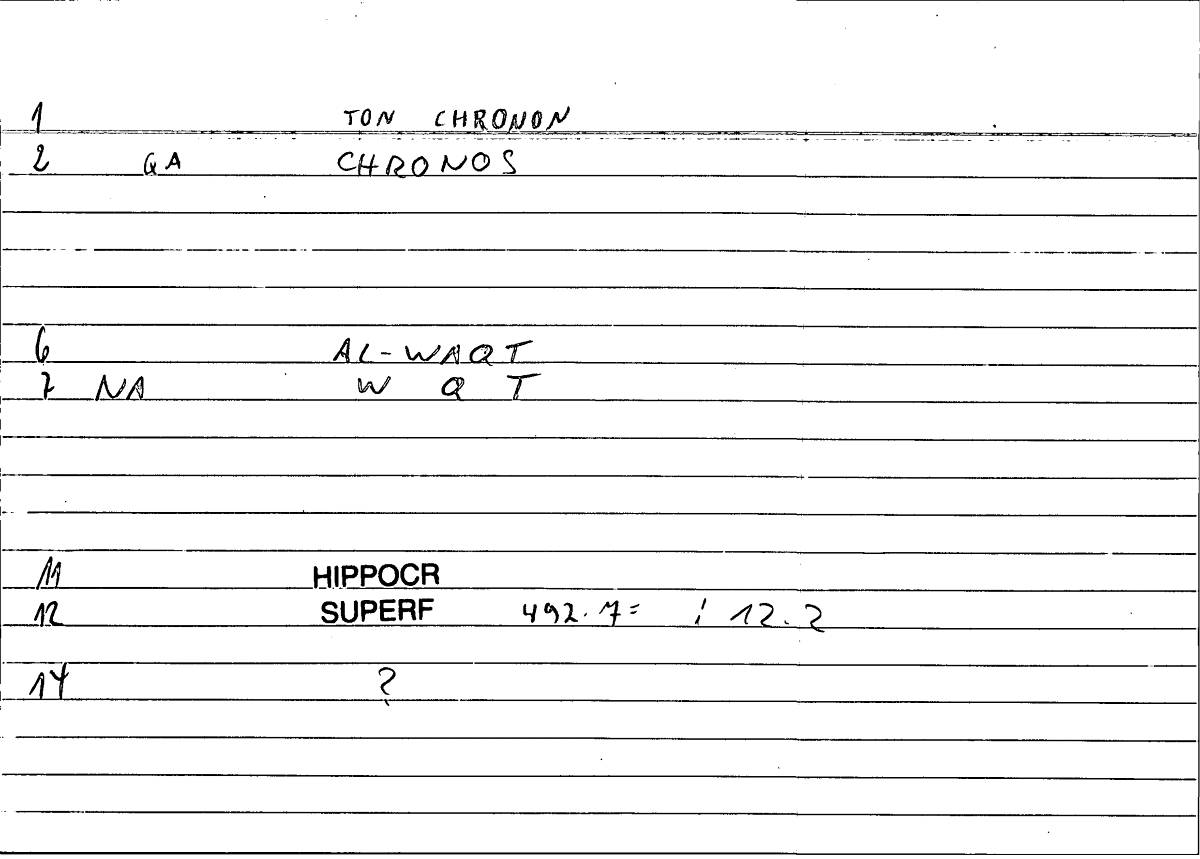 1 TON CHRONON
2 QA CHRONOS
6 AL-WAQT
7 NA W Q T
11 HIPPOCR
12 SUPERF 492.7= / 12.2
14 ?